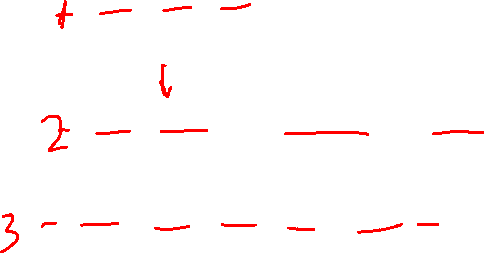 1 — — —
↓
2 — — — —
3 - — — — — — -